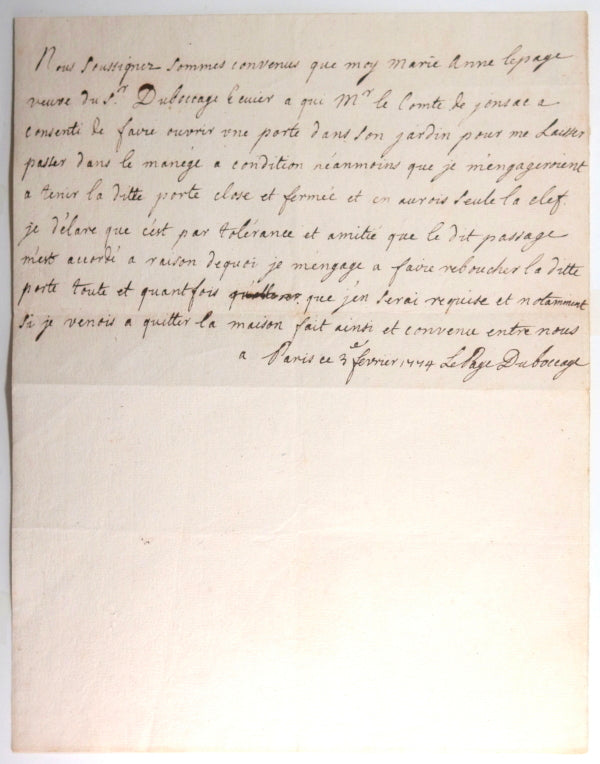 Nous soussignez sommes convenus que moy marie anne lepage
veuve du S.r Duboccage Ecuier a qui Mr le Comte de jonsac a
consenti de faire ouvrir une porte dans son jardin pour me Laisser
passer dans le manége a condition néanmoins que je m'engageroient
a tenir la ditte porte close et fermée et en aurois seule la clef.
je déclare que c'ést par tolérance et amitié que le dit passage
m'est accordé a raison dequoi je m'engage a faire reboucher la ditte
porte toute et quantfois que j'en serai requise et notamment
si je venois a quitter la maison fait ainsi et convenu entre nous
a Paris ce 3e fevrier 1774 LePage Duboccage